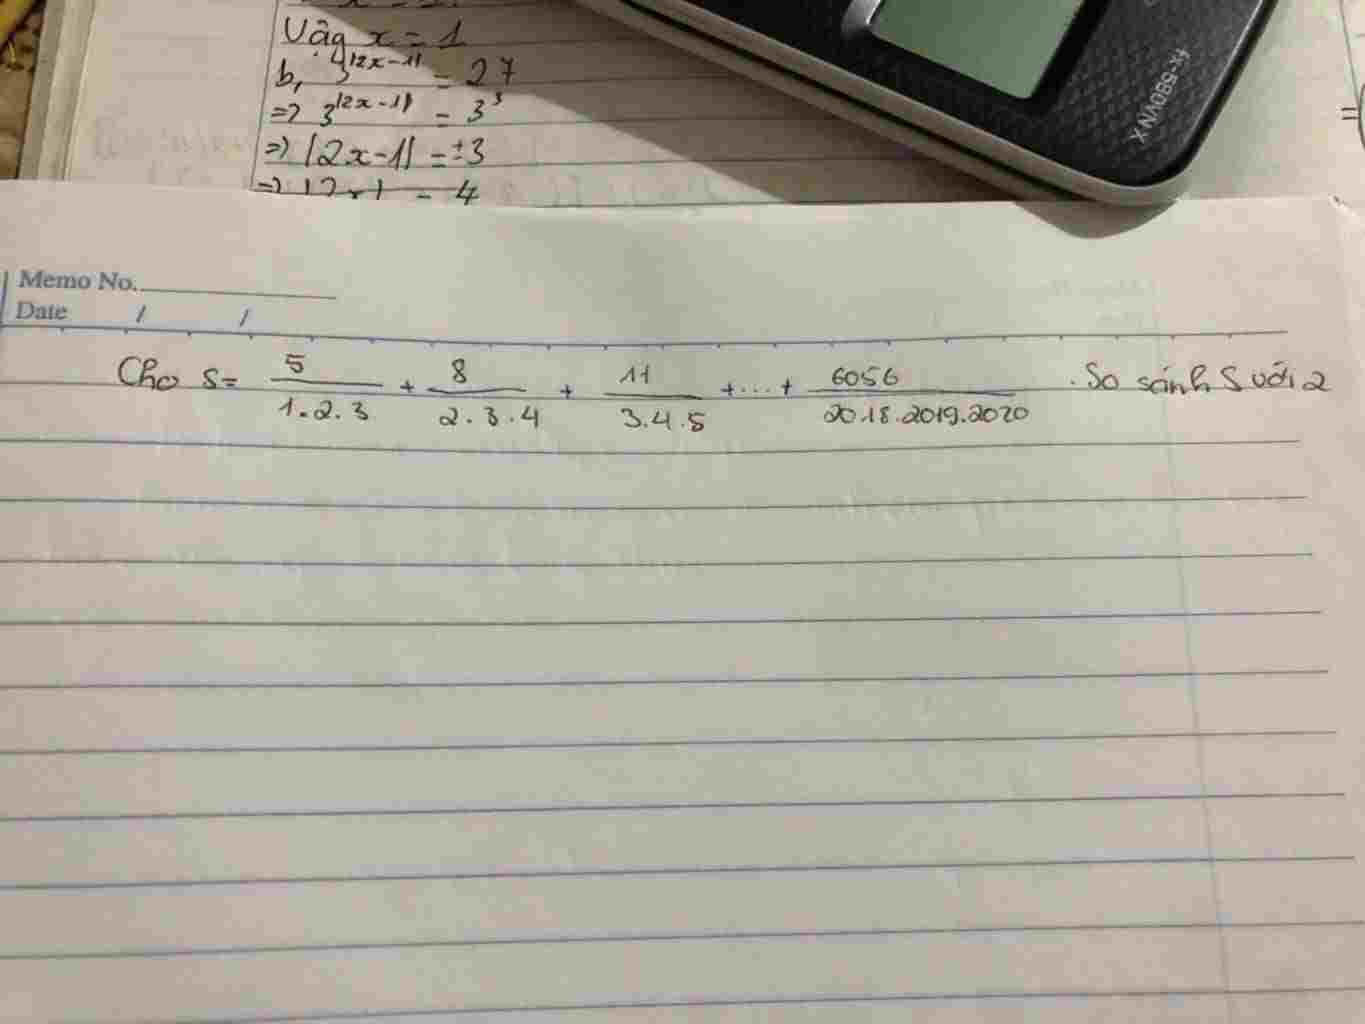 Vậy x = 1
b, 3^|2x-1| = 27
=> 3^|2x-1| = 3^3
=> |2x-1| = ±3
=> |2x| = 4
fx-580VN X
=
Memo No.
Date / /
Cho S= 5/1.2.3 + 8/2.3.4 + 11/3.4.5 +...+ 6056/2018.2019.2020 . So sánh S với 2